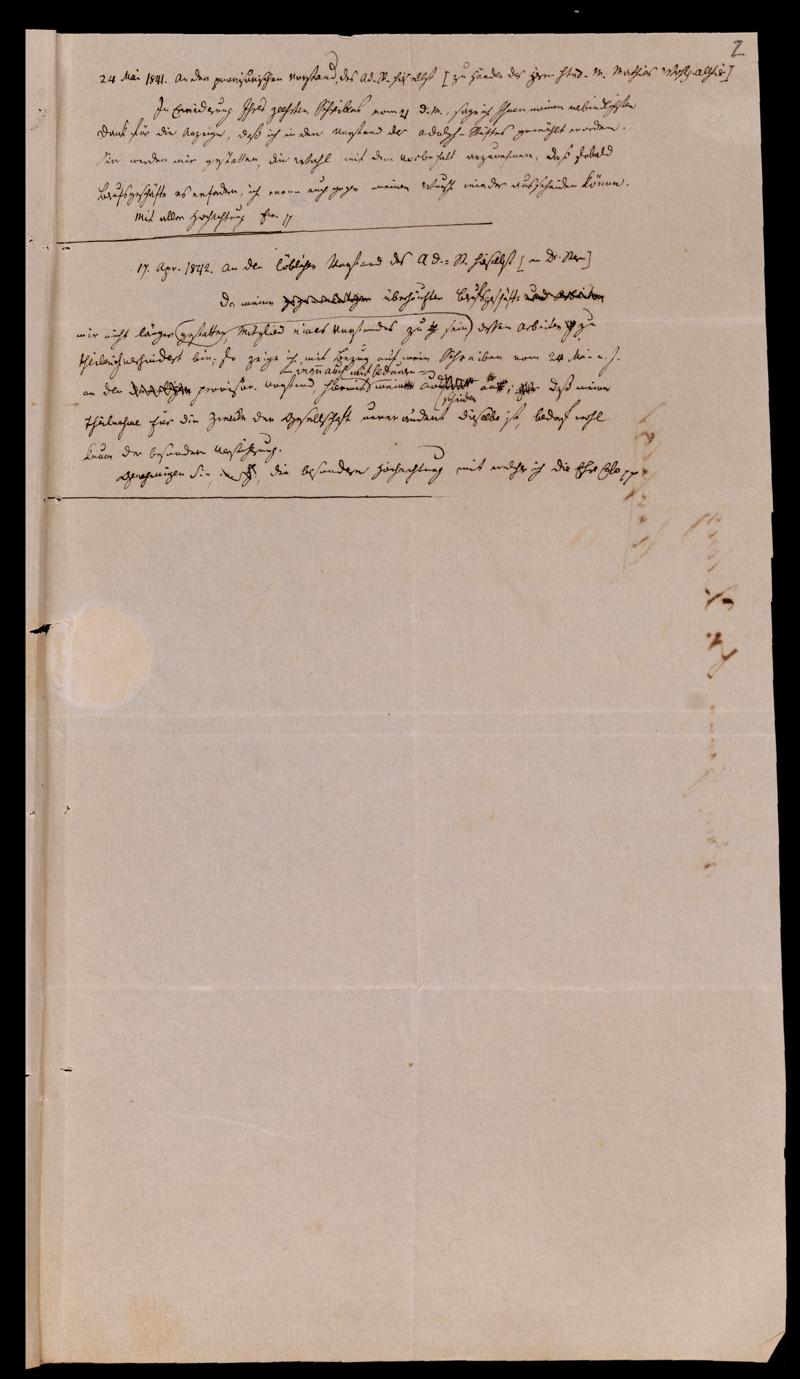 2
24 Mai 1841. An den provisorischen Vorstand des Ad.-St. hieselbst [zu Händen des Herrn Stud. M. Mathias
In Erwiderung Ihres geehrten Schreibens vom 21 d. M., sage ich Ihnen meinen verbindlichsten
Dank für die Anzeige, daß ich in den Vorstand des Adolph-Stiftes gewählt worden.
Sie werden mir gestatten, die Wahl mit dem Vorbehalt anzunehmen, daß sobald
Berufsgeschäfte es erfordern, ich wenn auch gegen meinen Wunsch wieder ausscheiden könne.
Mit aller Hochachtung Ew.
17. Apr. 1842. An den löblichen Vorstand des Ad.-St. hieselbst [an Dr.
Da meine überhäuften Berufsgeschäfte und Arbeiten
mir nicht länger gestatten, Mitglied eines Vorstandes zu sein, dessen Arbeiten zu
theilen verhindert bin; so zeige ich, mit Bezug auf mein Schreiben vom 24 Mai v. J.
wenn auch mit Bedauern
an den provisor. Vorstand, hiermit mein an; daß meine
scheiden
Theilnahme für die Zwecke der Gesellschaft unverändert dieselbe ist, bedarf wohl
kaum der besondern Versicherung.
Genehmigen Sie, die besondere Hochachtung mit welcher ich die Ehre habe pp